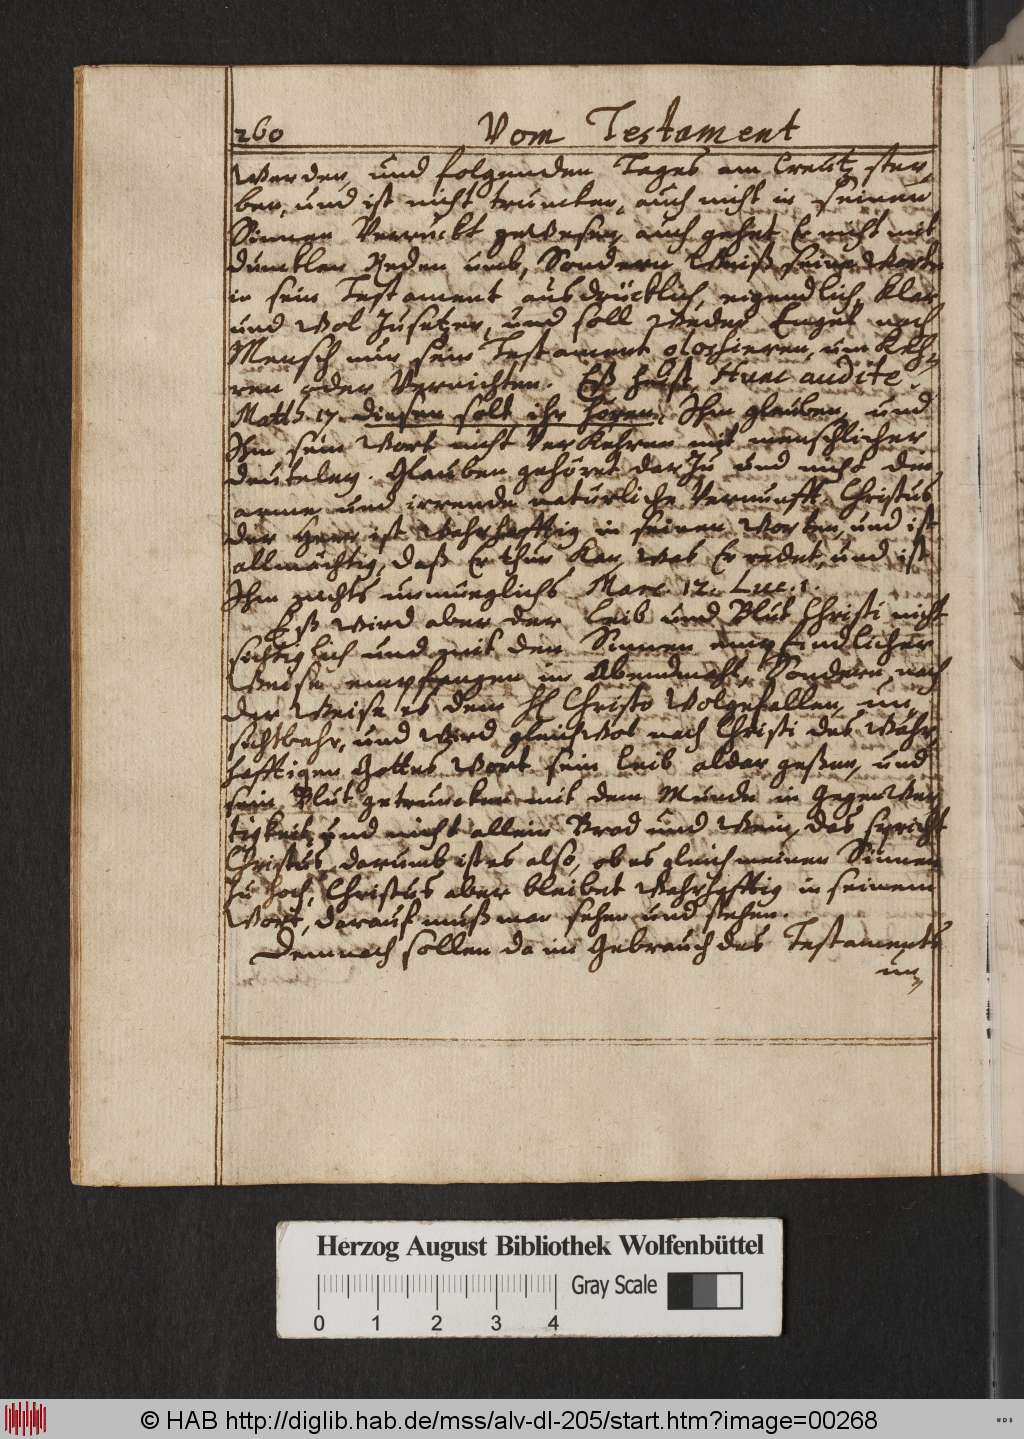 260 Vom Testament
Werden, und folgenden Tages am Creütz ster„
ben, und ist nicht truncken, auch nicht in seinen
Sinnen Verruckt gewesen, auch gehet Er nicht mit
dunklen Reden umb, Sondern Weiß seine Worte
in sein Testament ausdrücklich, eigendlich, klar
und Wol Zusetzen, und soll Weder Engel noch
Mensch nun sein Testament glossieren, um Keh„
ren oder Vernichten. Eß heist, Hunc audite.
Matth. 17. diesen solt ihr hören, Ihm glauben, und
Ihm sein Wort nicht VerKehren mit menschlicher
deuteley. Glauben gehöret darZu und nicht die
arme und irrende natürliche Vernunfft. Christus
der Herr ist Wahrhafftig in seinen Worten, und ist
allmächtig, daß Er thun Kan, Was Er redet, und ist
Ihm nichts unmüeglichs Marc. 12. Luc. 1.
Eß Wird aber der Leib und Blut Christi nicht
sichtiglich und mit den Sinnen empfindlicher
Weise empfangen im Abendmahl, Sondern, nach
der Weise es dem H Christo Wolgefallen, un„
sichtbahr, und Wird gleichWol nach Christi des Wahr„
hafftigen Gottes Wort sein Leib aldar geßen, und
sein Blut getruncken mit dem Munde in GegenWer„
tigkeit, und nicht allein Brod und Wein, das spricht
Christus, darumb ist es also, ob es gleich meinen Sinnen
Zu hoch, Christus aber bleibet Wahrhafftig in seinem
Wort, darauf muß man sehen und stehen.
Demnach sollen da im Gebrauch des Testaments
un„
Herzog August Bibliothek Wolfenbüttel
Gray Scale
0 1 2 3 4
© HAB http://diglib.hab.de/mss/alv-dl-205/start.htm?image=00268